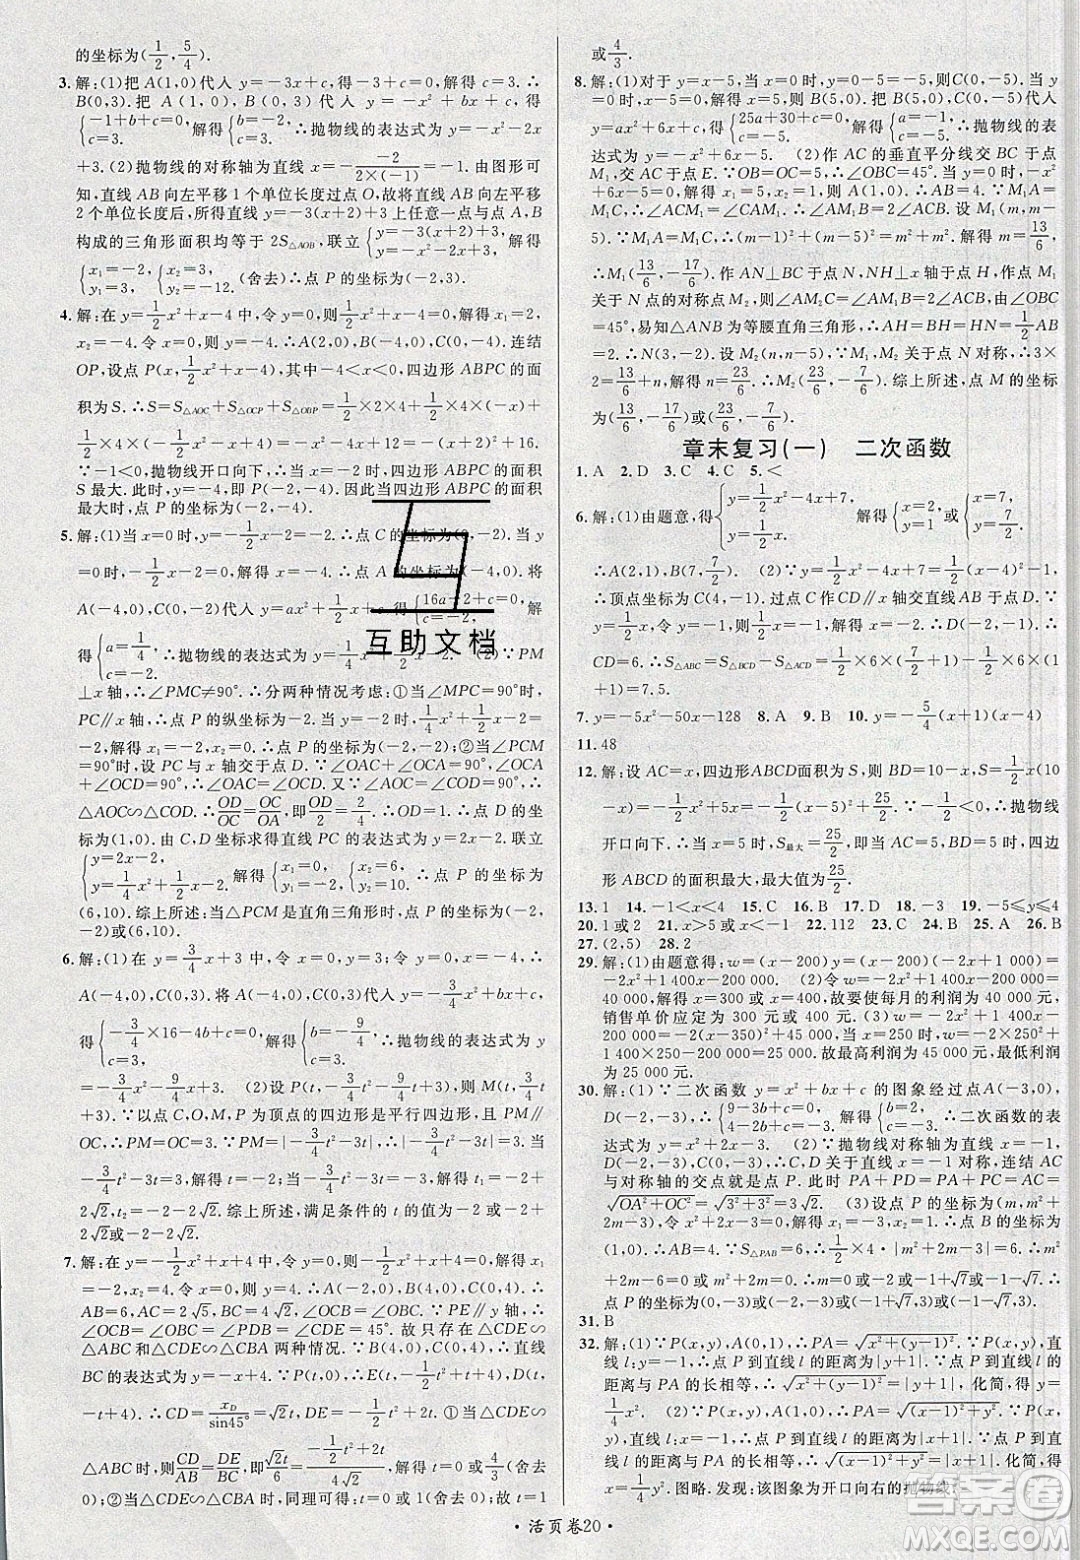 的坐标为(1/2,5/4).
3.解:(1)把A(1,0)代入 y=-3x+c,得-3+c=0,解得c=3.∴
B(0,3).把 A(1,0),B(0,3)代入 y=-x²+bx+c,得
{-1+b+c=0, c=3. 解得{b=-2, c=3. ∴抛物线的表达式为y=-x²-2x
+3.(2)抛物线的对称轴为直线x=- -2/(2×(-1))=-1.由图形可
知,直线AB向左平移1个单位长度过点O,故将直线AB向左平移
2个单位长度后,所得直线y=-3(x+2)+3上任意一点与点A,B
构成的三角形面积均等于2S△AOB,联立{y=-3(x+2)+3, y=-x²-2x+3, 解得
{x₁=-2, y₁=3; {x₂=3, y₂=-12. (舍去)∴点P的坐标为(-2,3).
4.解:在y=1/2x²+x-4中,令y=0,则1/2x²+x-4=0,解得x₁=2,
x₂=-4.令x=0,则y=-4.∴A(2,0),B(-4,0),C(0,-4).连结
OP,设点P(x,1/2x²+x-4),其中-4<x<0,四边形ABPC的面
积为S.∴S=S△AOC+S△OCP+S△OBP=1/2×2×4+1/2×4×(-x)+
1/2×4×(-1/2x²-x+4)=4-2x-x²-2x+8=-(x+2)²+16.
∵-1<0,∴抛物线开口向下,∴当x=-2时,四边形ABPC的面积
S最大.此时y=-4,即P(-2,-4).因此当四边形ABPC的面积
最大时,点P的坐标为(-2,-4).
5.解:(1)当x=0时,y=-1/2x-2=-2,∴点C的坐标为(0,-2).当y
=0时,-1/2x-2=0,解得x=-4.∴点A的坐标为(-4,0).将
A(-4,0),C(0,-2)代入y=ax²+1/2x+c,得{16a-2+c=0, c=-2, 解
得{a=1/4, c=-2. ∴抛物线的表达式为y=1/4x²+1/2x-2.(2)∵PM
⊥x轴,∴∠PMC≠90°.∴分两种情况考虑:①当∠MPC=90°时,
PC∥x轴,∴点P的纵坐标为-2.当y=-2时,1/4x²+1/2x-2=
-2,解得x₁=-2,x₂=0,∴点P的坐标为(-2,-2);②当∠PCM=
90°时,设PC与x轴交于点D.∵∠OAC+∠OCA=90°,∠OCA
+∠OCD=90°,∴∠OAC=∠OCD.又∵∠AOC=∠COD=90°,
∴△AOC∽△COD.∴OD/OC=OC/OA,即OD/2=2/4.∴OD=1.∴点D的坐
标为(1,0).由C,D坐标求得直线PC的表达式为y=2x-2.联立
{y=2x-2, y=1/4x²+1/2x-2, 解得{x₁=0, y₁=-2, {x₂=6, y₂=10. ∴点P的坐标为
(6,10).综上所述:当△PCM是直角三角形时,点P的坐标为(-2,
-2)或(6,10).
6.解:(1)在y=3/4x+3中,令x=0,得y=3;令y=0,得x=-4.
∴A(-4,0),C(0,3).将A(-4,0),C(0,3)代入y=-3/4x²+bx+c,
得{-3/4×16-4b+c=0, c=3, 解得{b=-9/4, c=3. ∴抛物线的表达式为y
=-3/4x²-9/4x+3.(2)设P(t,-3/4t²-9/4t+3),则M(t,3/4t
+3).∵以点C,O,M,P为顶点的四边形是平行四边形,PM∥
OC,∴PM=OC=3.∵PM=|-3/4t²-3t|,∴|-3/4t²-3t|=3.当
-3/4t²-3t=3时,解得t=-2;当-3/4t²-3t=-3时,解得t₁=-2+
2√2,t₂=-2-2√2.综上所述,满足条件的t的值为-2或-2+
2√2或-2-2√2.
7.解:在y=-1/2x²+x+4中,令y=0,则-1/2x²+x+4=0,解得x₁
=-2,x₂=4.令x=0,则y=4,∴A(-2,0),B(4,0),C(0,4).∴
AB=6,AC=2√5,BC=4√2.∵OB=OC,PE∥y轴,
∴∠OCB=∠OBC=∠PDB=∠CDE=45°.故只存在△CDE∽
△ABC和△CDE∽△CBA两种情况.∵B(4,0),C(0,4),∴直线
BC的表达式为y=-x+4.∵P(t,0),∴E(t,-1/2t²+t+4),D(t,
-t+4).∴CD=x_D/sin45°=√2t,DE=-1/2t²+2t.①当△CDE∽
△ABC时,则CD/AB=DE/BC,即√2t/6=(-1/2t²+2t)/4√2,解得t=4/3或t=0(舍
去);②当△CDE∽△CBA时,同理可得:t=1或t=0(舍去).故t=1
或4/3.
8.解:(1)对于y=x-5,当x=0时,y=-5,则C(0,-5).当
y=0时,x-5=0,解得x=5,则B(5,0).把B(5,0),C(0,-5)代入
y=ax²+6x+c,得{25a+30+c=0, c=-5, 解得{a=-1, c=-5. ∴抛物线的表
达式为y=-x²+6x-5.(2)作AC的垂直平分线交BC于点
M₁,交AC于点E.∵OB=OC=5,∴∠OCB=∠OBC=45°.当y=0时,
-x²+6x-5=0,解得x₁=1,x₂=5,则A(1,0).∵M₁A=
M₁C,∴∠ACM₁=∠CAM₁.∴∠AM₁B=2∠ACM₁.设M₁(m,m-
5).∵M₁A=M₁C,∴(m-1)²+(m-5)²=m²+m².∴m=13/6.
∴M₁(13/6,-17/6).作AN⊥BC于点N,NH⊥x轴于点H,作点M₁
关于N点的对称点M₂,则∠AM₂C=∠AM₁B=2∠ACB.∵∠OBC
=45°,易知△ANB为等腰直角三角形,∴AH=BH=HN=1/2AB
=2.∴N(3,-2).设点M₂(n,n-5),∵点N是M₁M₂的中点,∴3×
2=13/6+n,n=23/6,∴M₂(23/6,-7/6).综上所述,点M的坐标
为(13/6,-17/6)或(23/6,-7/6).
章末复习(一) 二次函数
1.A 2.D 3.C 4.C 5.<
6.解:(1)由题意,得{y=1/2x²-4x+7, y=1/2x, 解得{x=2, y=1 或{x=7, y=7/2.
∴A(2,1),B(7,7/2).(2)∵y=1/2x²-4x+7=1/2(x-4)²-1,∴
顶点坐标为C(4,-1).过点C作CD∥x轴交直线AB于点D.∵y
=1/2x,令y=-1,则1/2x=-1,解得x=-2.∴D(-2,-1).∴
CD=6.∴S△ABC=S△BCD-S△ACD=1/2×6×(7/2+1)-1/2×6×(1
+1)=7.5.
7.y=-5x²-50x-128 8.A 9.B 10.y=-5/4(x+1)(x-4)
11.48
12.解:设AC=x,四边形ABCD面积为S,则BD=10-x,S=1/2x(10
-x)=-1/2x²+5x=-1/2(x-5)²+25/2.∵-1/2<0,∴抛物线
开口向下.∴当x=5时,S最大=25/2,即当AC=5,BD=5时,四边
形ABCD的面积最大,最大值为25/2.
13.1 14.-1<x<4 15.C 16.B 17.D 18.-3 19.-5≤y≤4
20.1或2 21.x>5或x<-1 22.112 23.C 24.D 25.A 26.B
27.(2,5) 28.2
29.解:(1)由题意得:w=(x-200)y=(x-200)(-2x+1000)=
-2x²+1 400x-200 000.(2)令w=-2x²+1 400x-200 000=
40 000,解得x=300或x=400,故要使每月的利润为40 000元,
销售单价应定为300元或400元.(3)w=-2x²+1 400x-
200 000=-2(x-350)²+45 000,当x=250时,w=-2×250²
+1 400×250-200 000=25 000.故最高利润为45 000元,最低利润
为25 000元.
30.解:(1)∵二次函数y=x²+bx+c的图象经过点A(-3,0),
D(-2,-3),∴{9-3b+c=0, 4-2b+c=-3, 解得{b=2, c=-3. ∴二次函数的表
达式为y=x²+2x-3.(2)∵抛物线对称轴为直线x=-1,
D(-2,-3),C(0,-3),∴C,D关于直线x=-1对称.连结AC
与对称轴的交点就是点P.此时PA+PD=PA+PC=AC=
√OA²+OC²=√3²+3²=3√2.(3)设点P的坐标为(m,m²+
2m-3),令y=x²+2x-3=0,解得x=-3或1.∴点B的坐标为
(1,0).∴AB=4.∵S△PAB=6,∴1/2×4·|m²+2m-3|=6,∴m²
+2m-6=0或m²+2m=0,解得m=-1-√7或-1+√7或0或-2.∴
点P的坐标为(0,-3)或(-2,-3)或(-1+√7,3)或(-1-√7,3).
31.B
32.解:(1)∵P(x,y),A(0,1),∴PA=√x²+(y-1)².∵P(x,y),直
线l:y=-1,∴点P到直线l的距离为|y+1|.∵点P到直线l的距
离与PA的长相等,∴√x²+(y-1)²=|y+1|,化简,得y=
1/4x².(2)∵P(x,y),A(1,0),∴PA=√(x-1)²+y².∵P(x,y),
直线l:x=-1,∴点P到直线l的距离为|x+1|.∵点P到直线l的
距离与PA的长相等,∴√(x-1)²+y²=|x+1|,化简,得x=
1/4y².图略.发现:该图象为开口向右的抛物线.
互助文档
答案圈
MXQE.COM
·活页卷20·